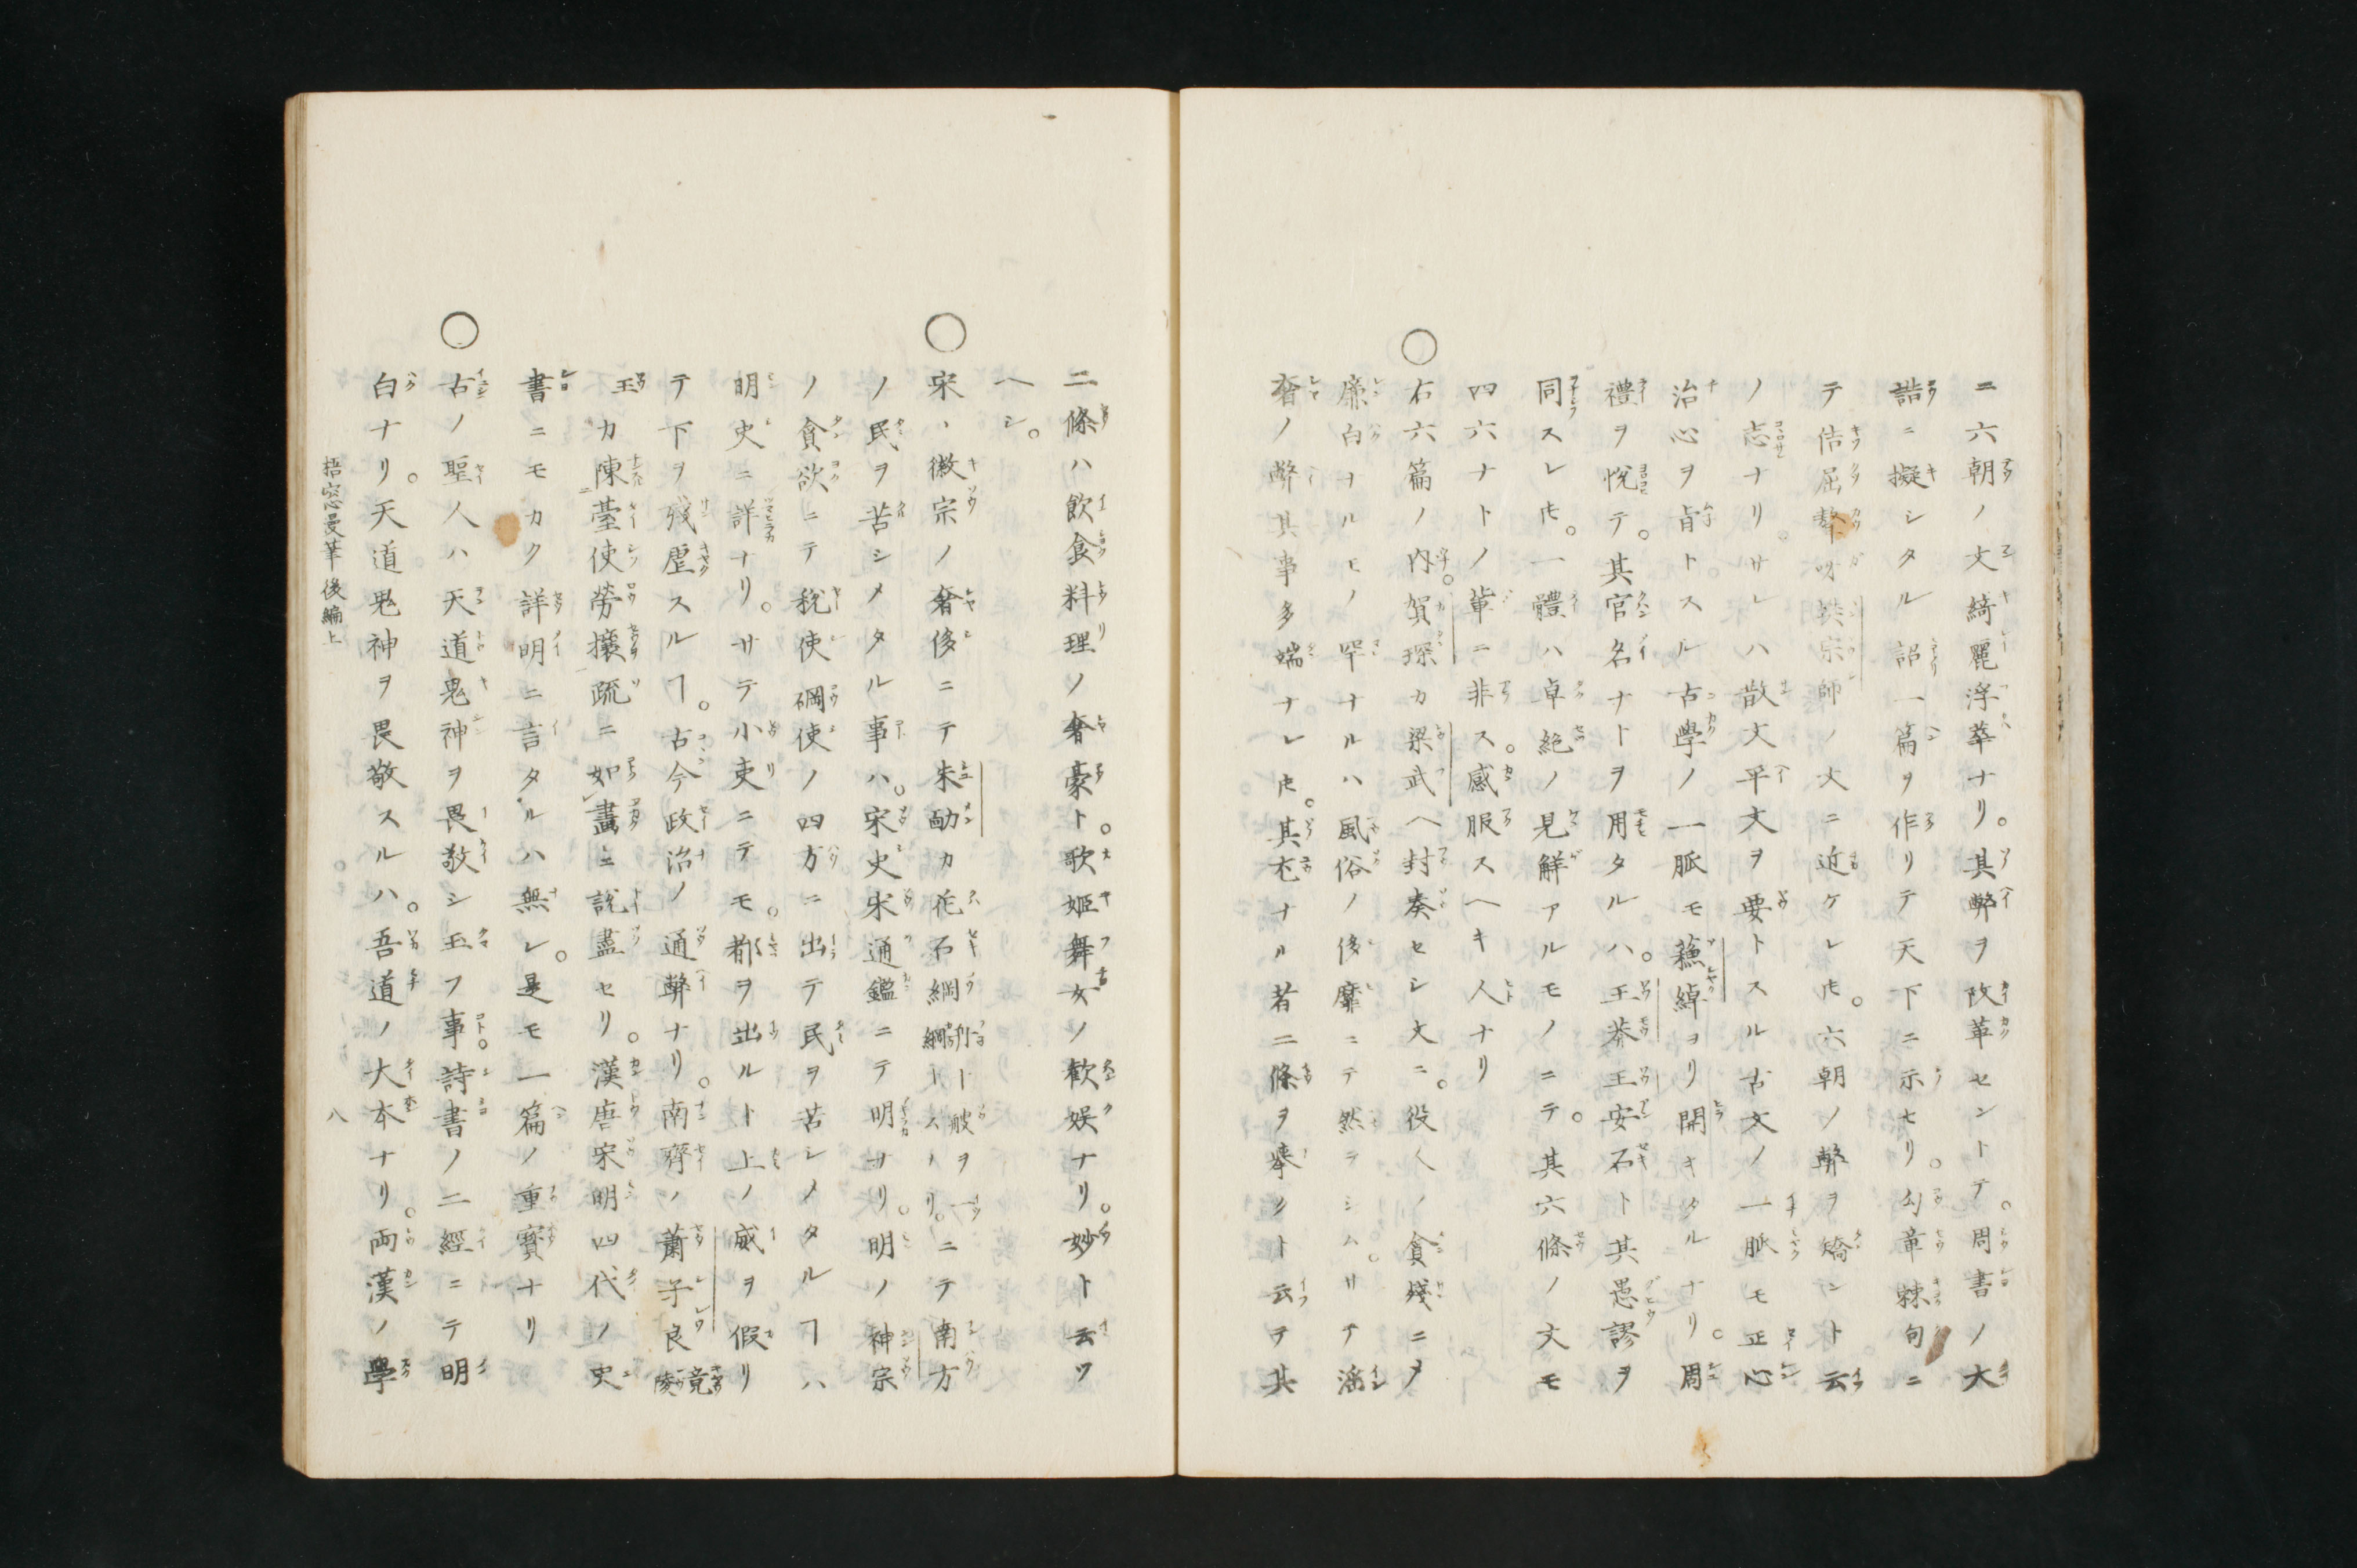 ニ六朝ノ文綺麗浮華ナリ。其弊ヲ改革セントテ。周書ノ大
誥ニ擬シタル詔一篇ヲ作リテ天下ニ示セリ。勾章棘句ニ
テ佶屈聱呀樊宗師ノ文ニ近ケレ𪜈。六朝ノ弊ヲ矯ント云
ノ志ナリ。サレハ散文平文ヲ要トスル古文ノ一脈モ正心
治心ヲ旨トスル古學ノ一脈モ蘓綽ヨリ開キタルナリ。周
禮ヲ悅テ。其官名ナトヲ用タルハ。王莽王安石ト其愚謬ヲ
同スレ𪜈。一體ハ卓絕ノ見解アルモノニテ。其六條ノ文モ
四六ナトノ輩ニ非ス。感服スヘキ人ナリ
○右六篇ノ内。賀琛カ梁武ヘ封奏セシ文ニ。役人ノ貪殘ニメ
廉白ナルモノ罕ナルハ風俗ノ侈靡ニテ然ラシム。サテ滛
奢ノ弊其事多端ナレ𪜈。其尤ナル者二條ヲ擧ント云テ其
二條ハ飲食料理ノ奢豪ト。歌姬舞女ノ歡娯ナリ。妙ト云ツ
ヘシ。
○宋ノ徽宗ノ奢侈ニテ朱勔カ花石綱舟十艘ヲ一綱トスルナリ。ニテ南方
ノ民ヲ苦シメタル事ハ。宋史宋通鑑ニテ明ナリ。明ノ神宗
ノ貪欲ニテ稅使礦使ノ四方ニ出テ民ヲ苦シメタルヿハ
明史ニ詳ナリ。サテ小吏ニテモ。都ヲ出ルト上ノ威ヲ假リ
テ下ヲ殘虐スルヿ。古今政治ノ通弊ナリ。南齊ノ蕭子良竟陵
王カ陳臺使勞攘疏ニ如畫ニ說盡セリ。漢唐宋明四代ノ史
書ニモカク詳明ニ言タルハ無レ。是モ一篇ノ重寳ナリ
○古ノ聖人ハ天道鬼神ヲ畏敬シ玉フ事。詩書ノ二經ニテ明
白ナリ。天道鬼神ヲ畏敬スルハ。吾道ノ大本ナリ。両漢ノ學
梧窓曼筆後編上 八